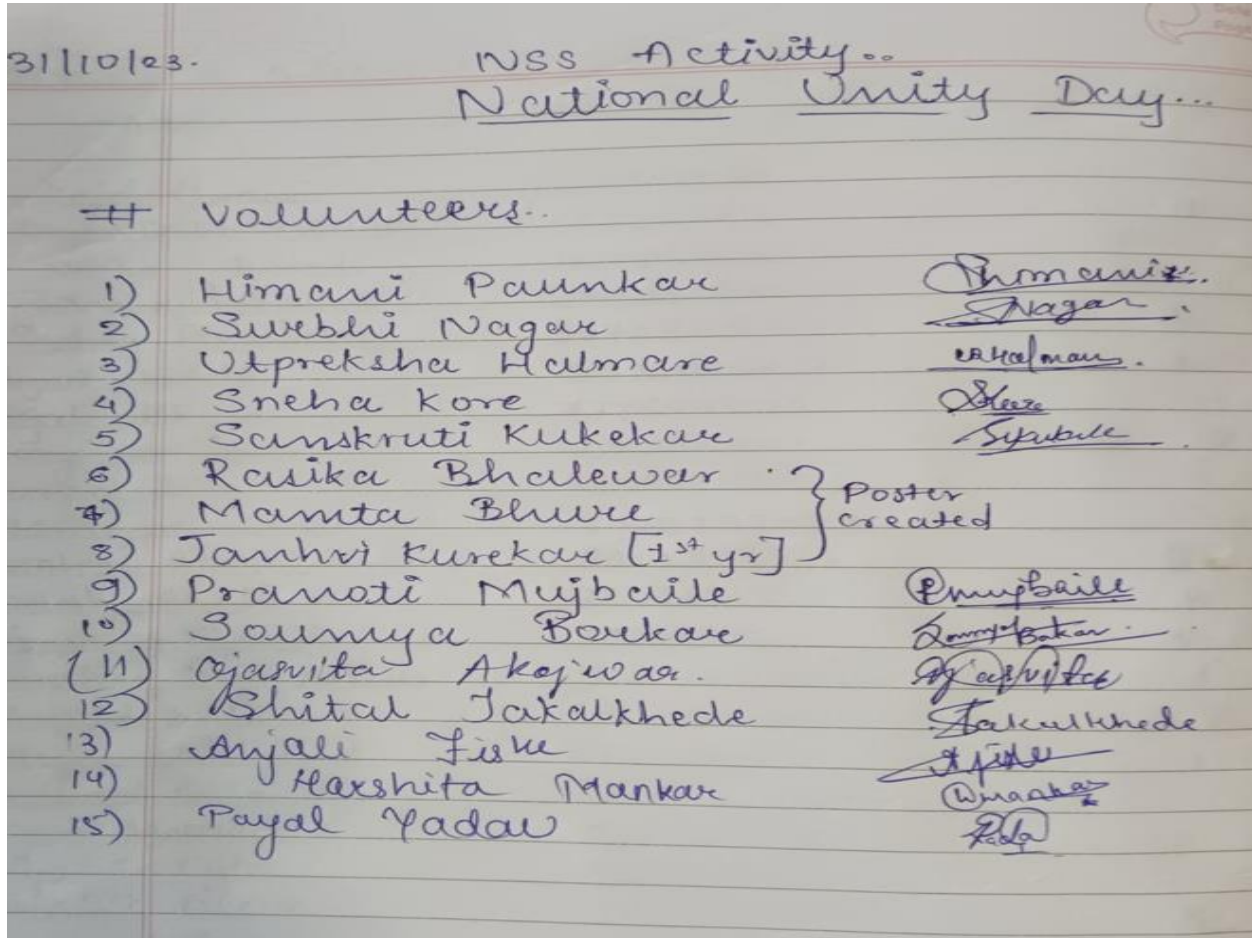 31/10/23.
NSS Activity..
National Unity Day...
# Volunteers..
1) Himani Paunkar
2) Surebhi Nagar Nagar
3) Utpreksha Halmare
4) Sneha Kore
5) Sanskruti Kukekar
6) Rasika Bhalewar
7) Mamta Bhure
8) Janhvi Kurekar [1st yr]
Poster
created
9) Pranoti Mujbaile Pmujbaile
10) Soumya Borkar
(11) Ojasvita Akojwar. Ojasvita
12) Shital Takalkhede
13) Anjali Fiske
14) Harshita Mankar
15) Payal Yadav